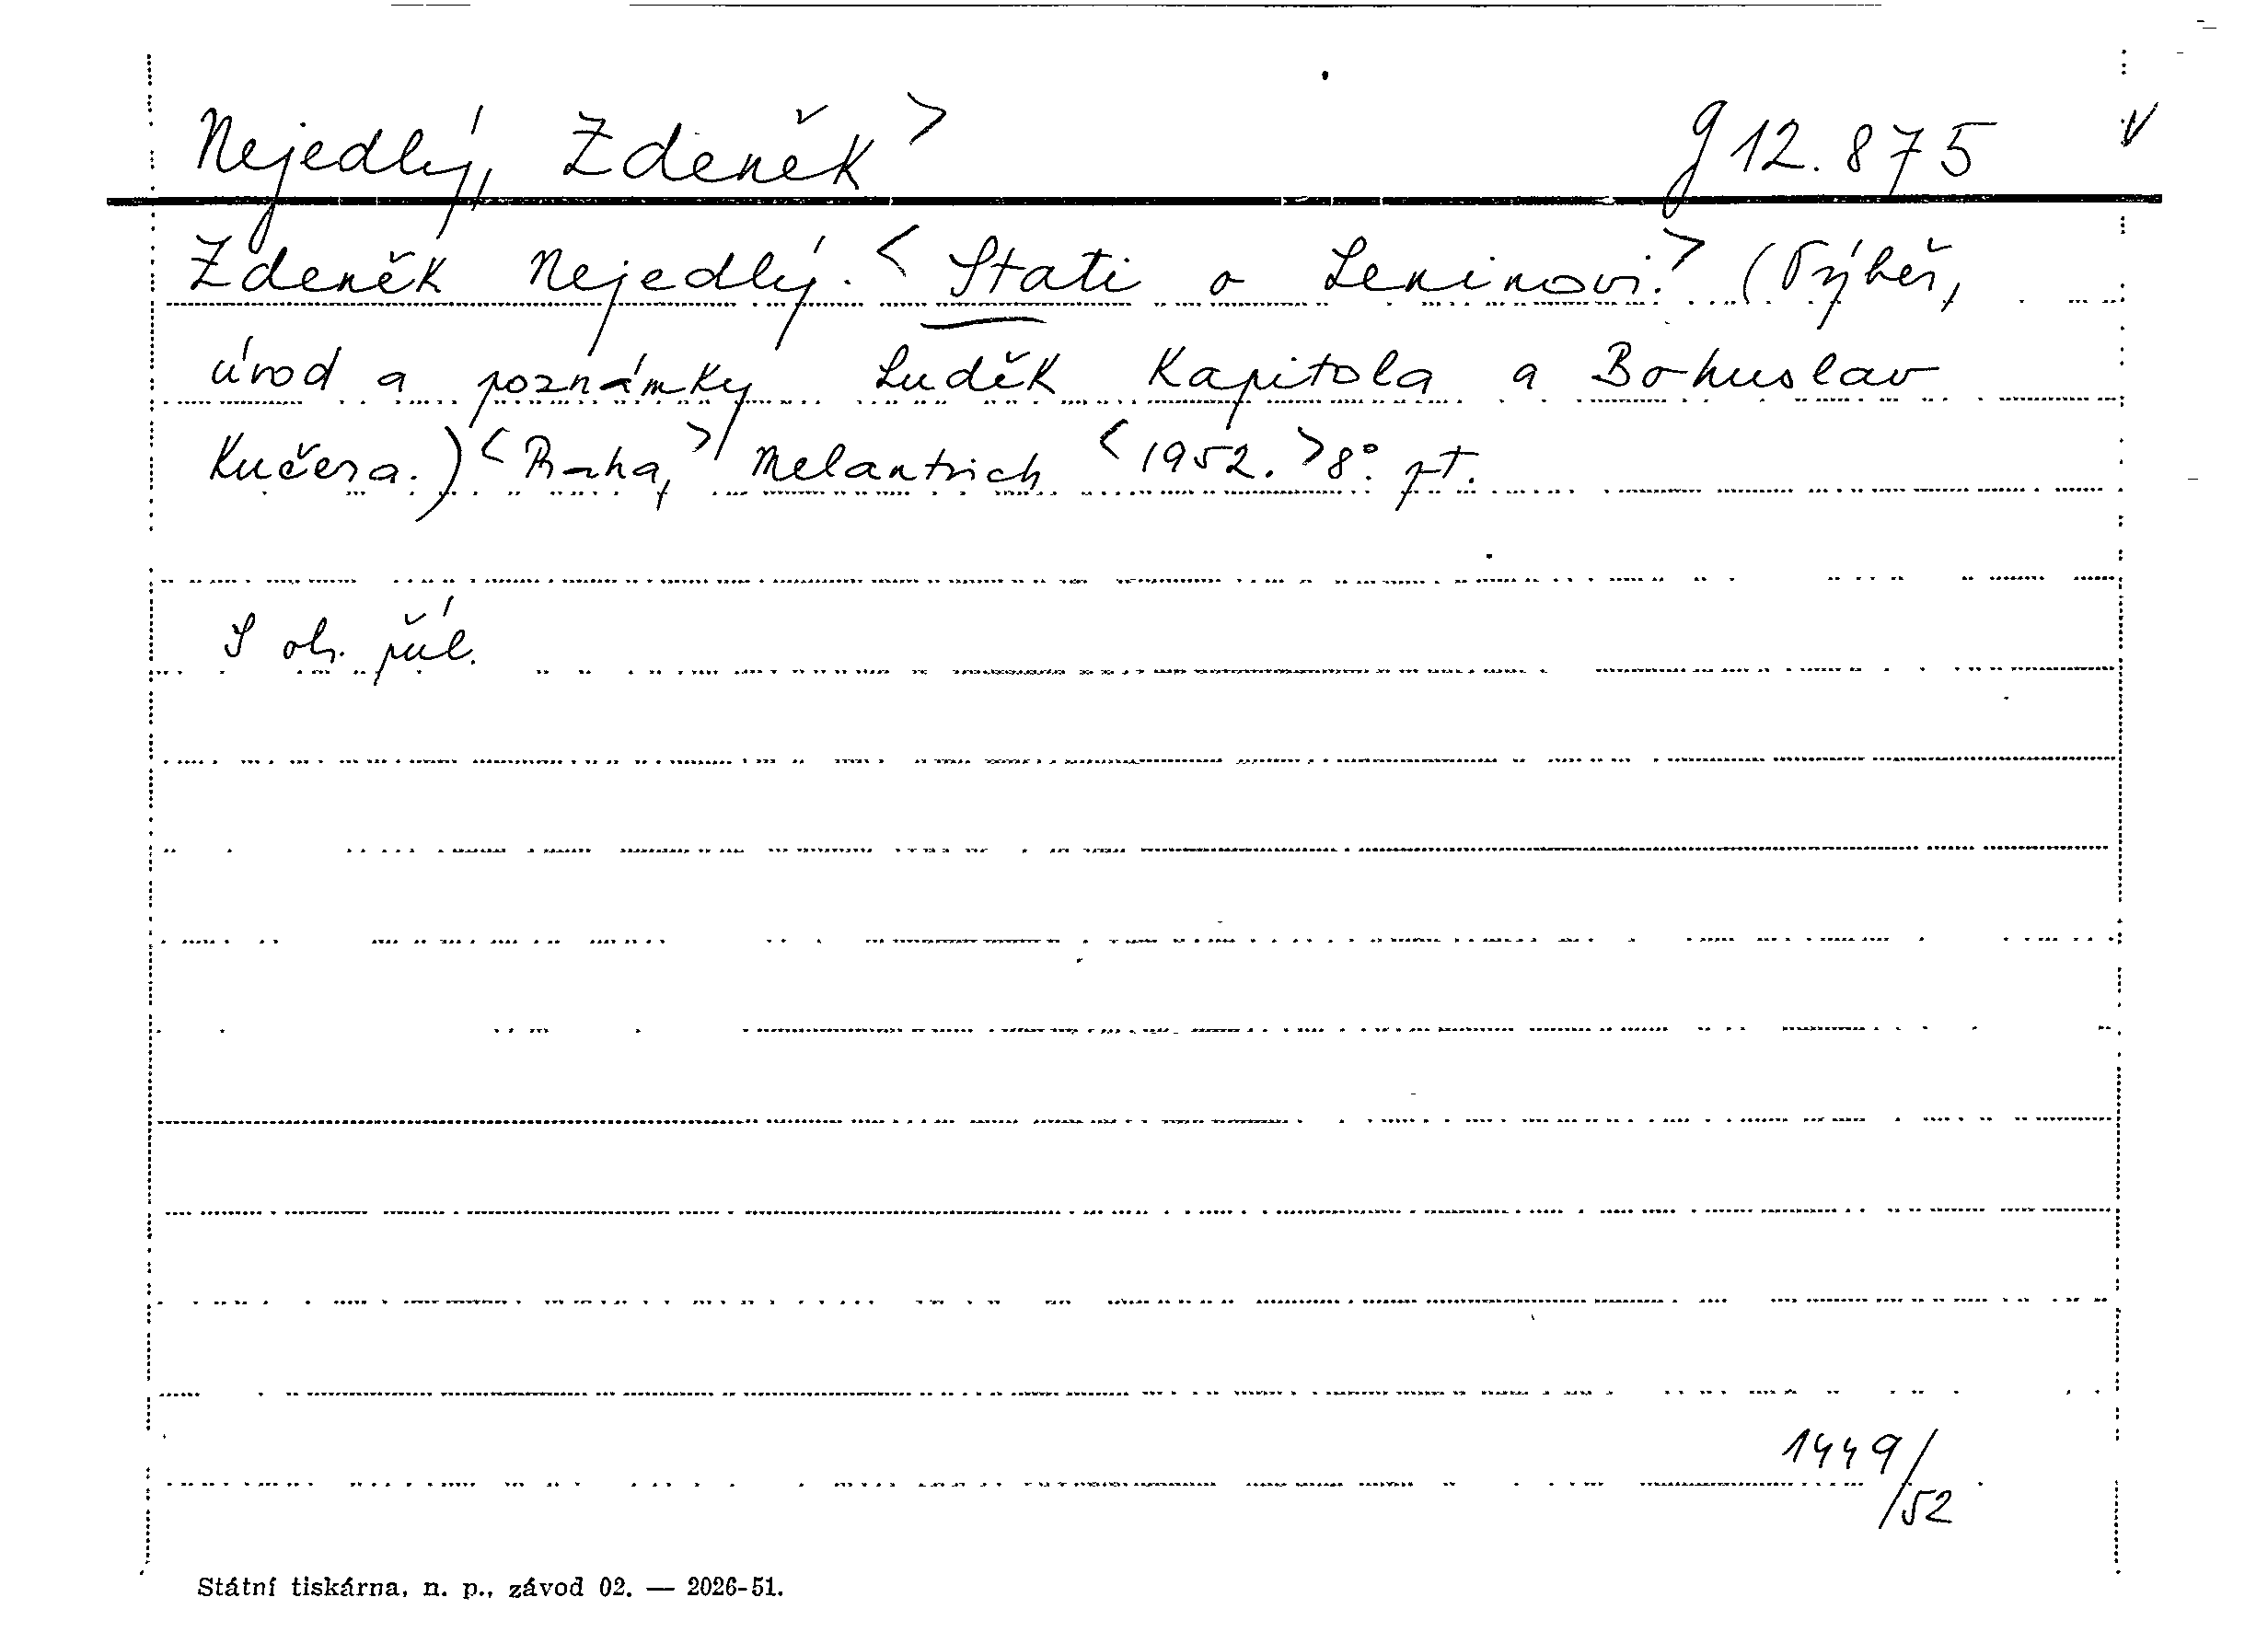 Nejedlý, Zdeněk> g 12.875 v
Zdeněk Nejedlý. <Stati o Leninovi.> (Výběr,
úvod a poznámky Luděk Kapitola a Bohuslav
Kučera.) <Praha,> Melantrich <1952.> 8°. pt.
S ob. příl.
1449/52
Státní tiskárna, n. p., závod 02. — 2026-51.